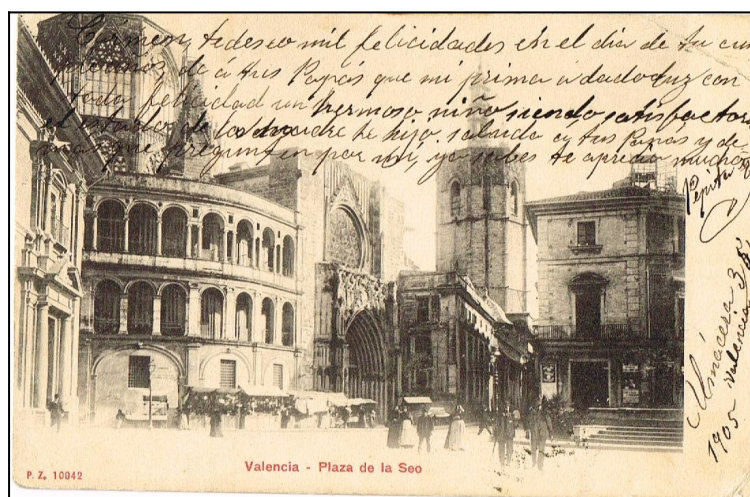 Carmen, te deseo mil felicidades en el dia de tu cum
pleaños, di á tus Papás que mi prima á dado a luz con
toda felicidad un hermoso niño siendo satisfactor
el estado de la madre he hijo, saluda a tus Papás y de
mas que pregunten por mi, ya sabes te aprecia mucho
Pepita
Almácera 3
Valencia
1905
Valencia - Plaza de la Seo
P. Z. 10042